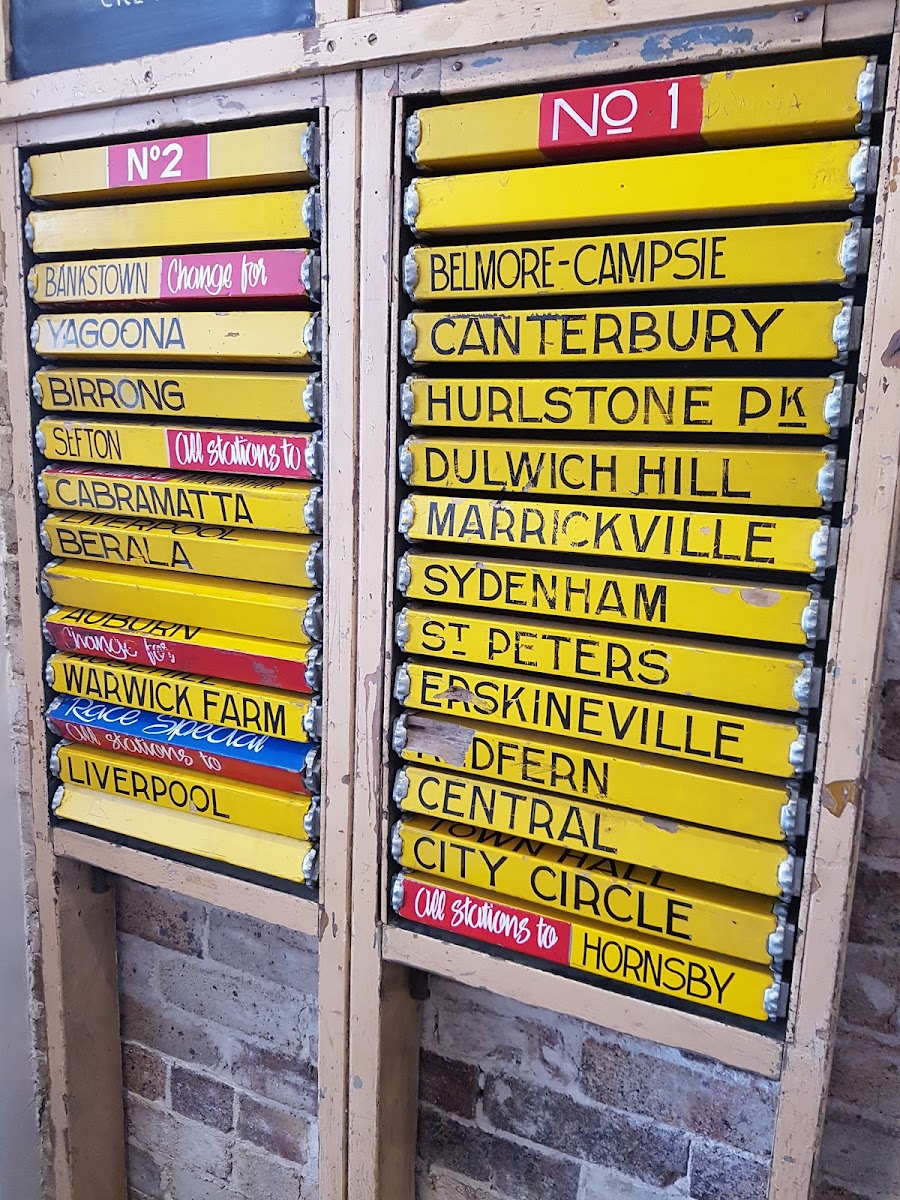 Nº2
BANKSTOWN Change for
YAGOONA
BIRRONG
SEFTON All stations to
CABRAMATTA
LIVERPOOL
BERALA
AUBURN
Change for
WARWICK FARM
Race Special
All stations to
LIVERPOOL
Nº 1
BELMORE-CAMPSIE
CANTERBURY
HURLSTONE PK
DULWICH HILL
MARRICKVILLE
SYDENHAM
ST PETERS
ERSKINEVILLE
REDFERN
CENTRAL
TOWN HALL
CITY CIRCLE
All stations to HORNSBY